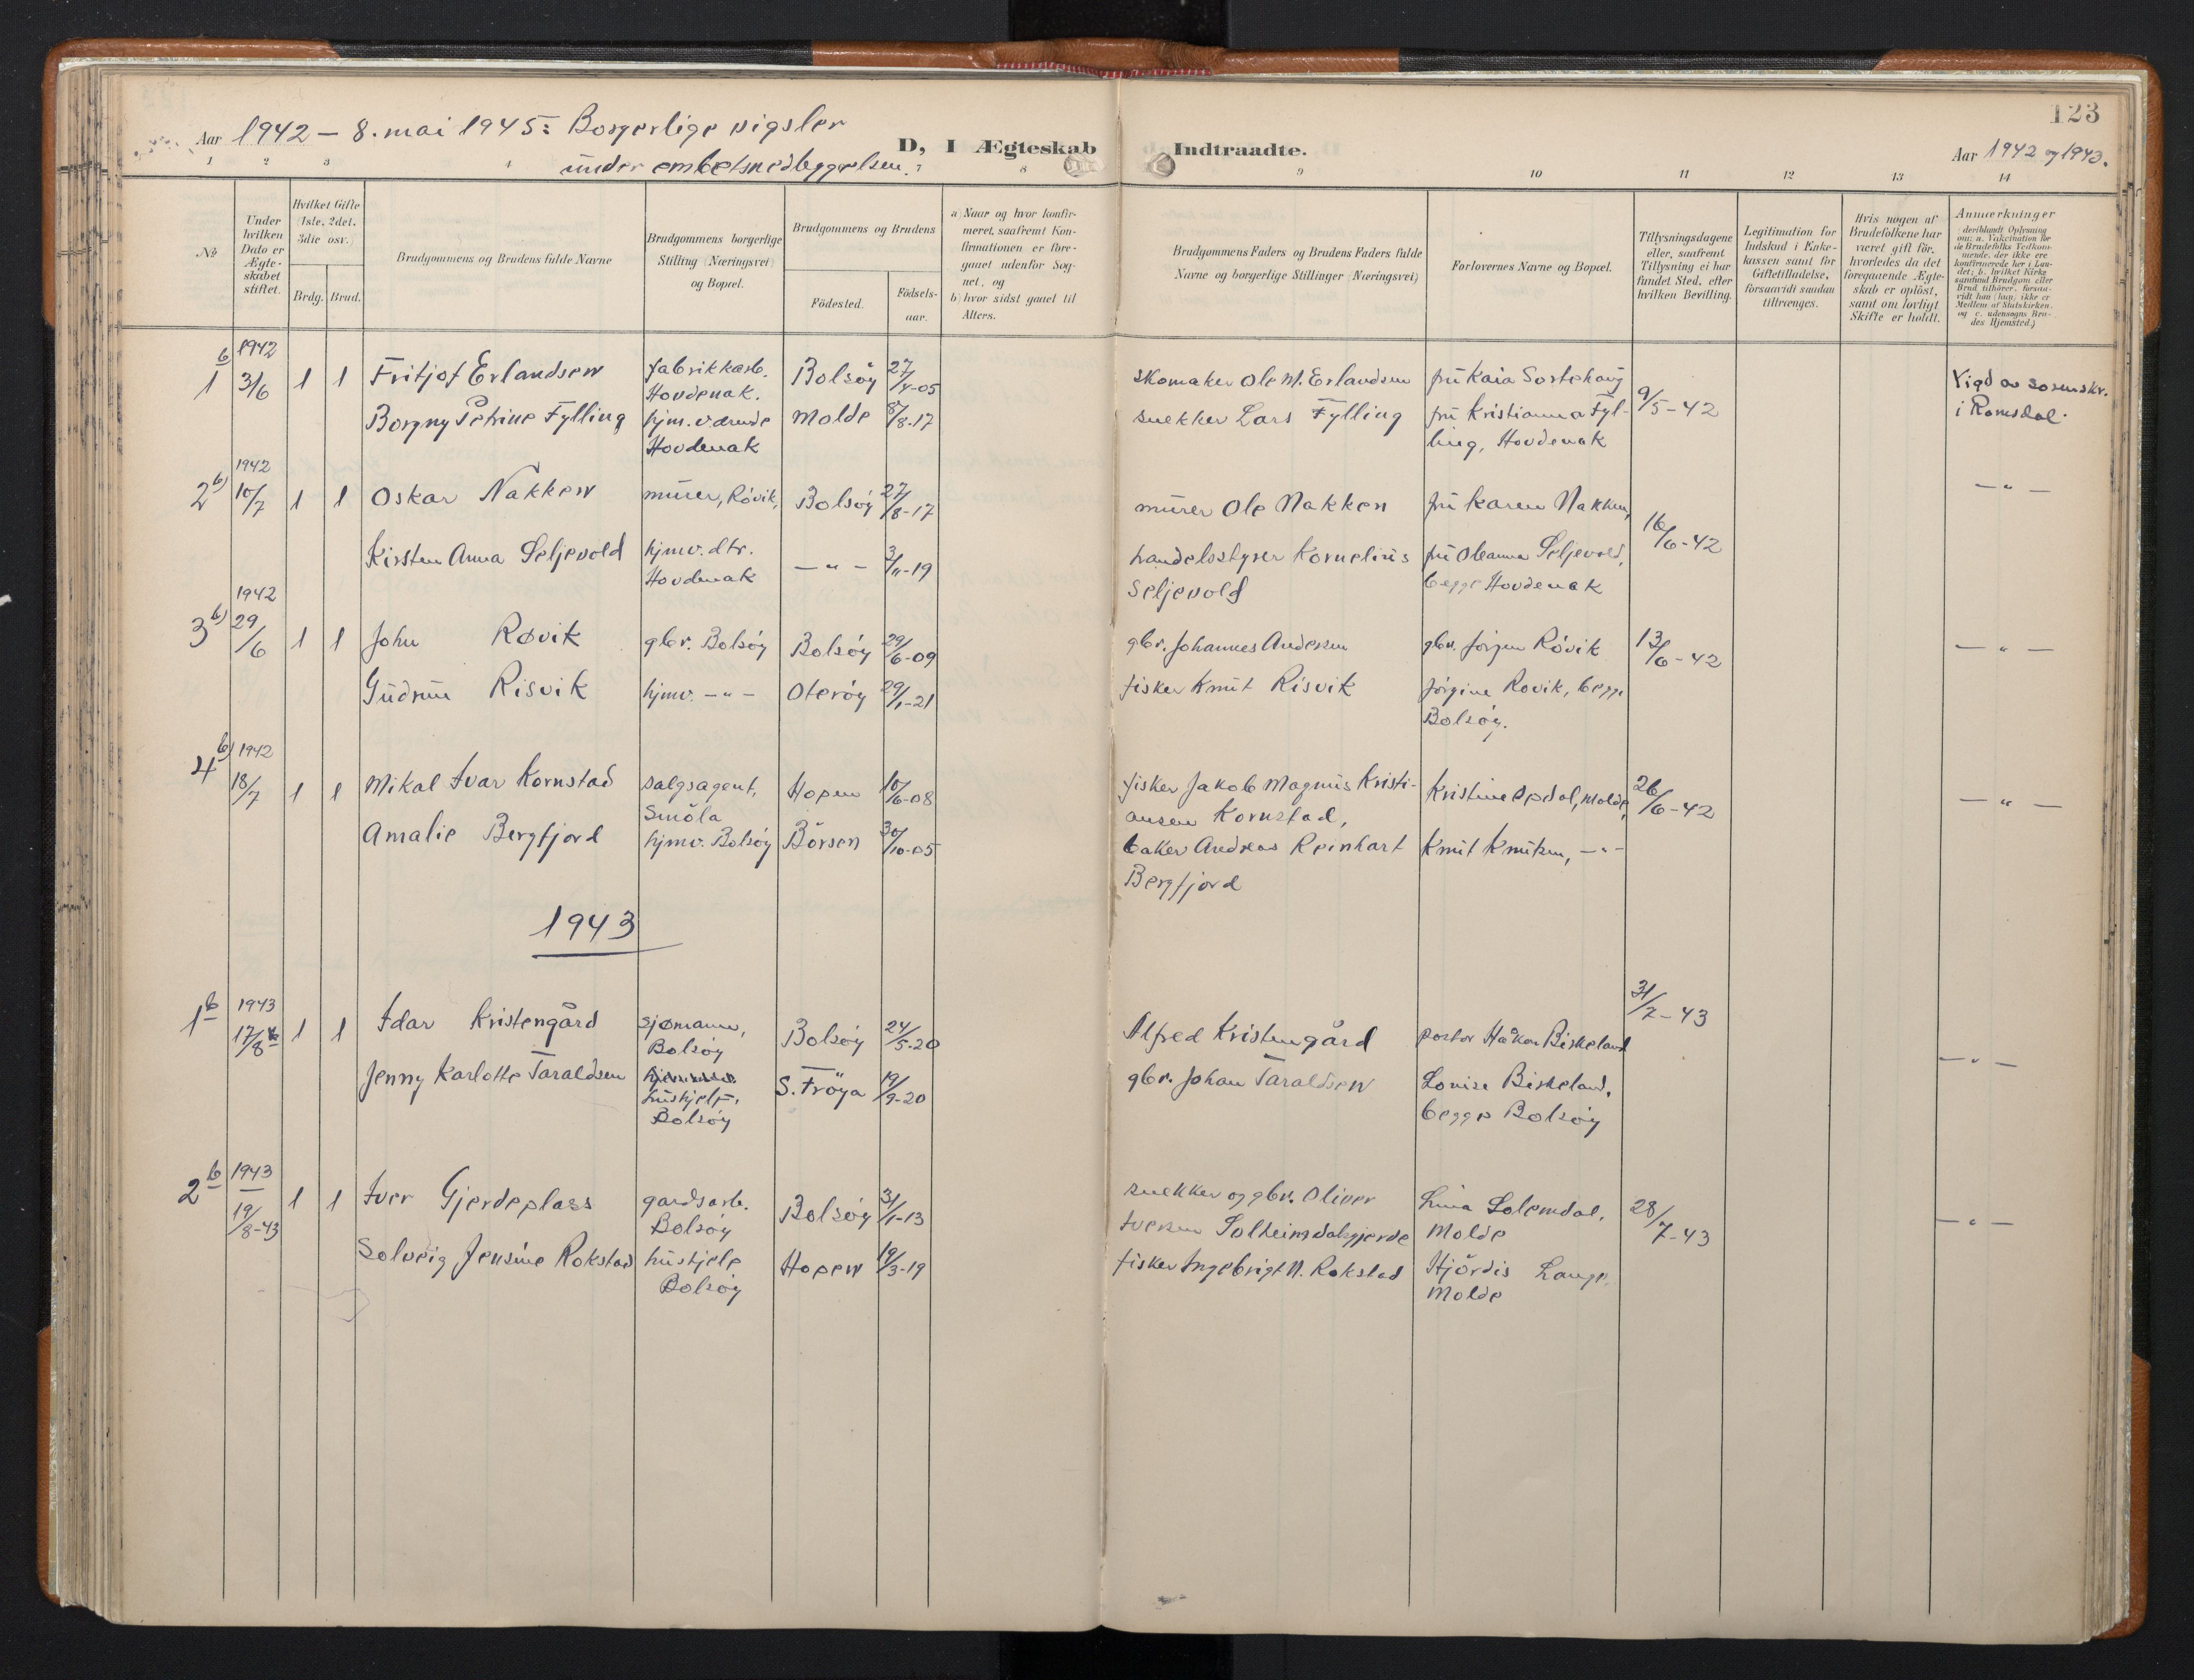 123
Aar 1942 – 8. mai 1945: Borgerlige vigsler
under embetsnedleggelsen.
D, I Ægteskab Indtraadte.
Aar 1942 og 1943.
1 2 3 4 7 8 9 10 11 12 13 14
No
Under hvilken Dato er Ægteskabet stiftet.
Hvilket Gifte (1ste, 2det, 3die osv.)
Brdg. Brud.
Brudgommens og Brudens fulde Navne
Brudgommens borgerlige Stilling (Næringsvei) og Bopæl.
Brudgommens og Brudens
Födested.
Födsels-aar.
a) Naar og hvor konfir-
meret, saafremt Kon-
firmationen er fore-
gaaet udenfor Sog-
net, og
b) hvor sidst gaaet til
Alters.
Brudgommens Faders og Brudens Faders fulde
Navne og borgerlige Stillinger (Næringsvei)
Forlovernes Navne og Bopæl.
Tillysningsdagene
eller, saafremt
Tillysning ei har
fundet Sted, efter
hvilken Bevilling.
Legitimation for
Indskud i Enke-
kassen samt for
Giftetilladelse,
forsaavidt saadan
tiltrænges.
Hvis nogen af
Brudefolkene har
været gift før,
hvorledes da det
foregaaende Ægte-
skab er oplöst,
samt om lovligt
Skifte er holdt.
Anmærkninger
(deriblandt Oplysning
om: a. Vakcination for
de Brudefolks Vedkom-
mende, der ikke ere
konfirmerede her i Lan-
det; b. hvilket Kirke-
samfund Brudgom eller
Brud tilhører, forsaa-
vidt han (hun) ikke er
Medlem af Statskirken,
og c. udensogns Bru-
des Hjemsted.)
1 b 1942 3/6 1 1 Fritjof Erlandsen fabrikkarb. Hovdenak. Bolsøy 27/ -05 skomaker Ole M. Erlandsen fru Kaia Sortehaug 9/5-42 Vigd av sorenskr. i Romsdal.
Borgny Petrine Fylling hjm.værende Hovdenak Molde 8/8-17 snekker Lars Fylling fru Kristianna Fyl-
ling, Hovdenak
2 b) 1942 10/7 1 1 Oskar Nakken murer, Róvik, Bolsøy 27/8-17 murer Ole Nakken fru Karen Nakken, 16/6-42 — " —
Kirsten Anna Seljevold hjmv. dtr. Hovdenak — " — 3/11-19 handelsstyrer Kornelius Seljevold fru Oleanna Seljevold,
begge Hovdenak
3 b) 1942 29/6 1 1 John Røvik gbr. Bolsøy Bolsøy 29/6-09 gbr. Johannes Andersen gbr. Jörgen Róvik 13/6-42 — " —
Gudrun Risvik hjmv. — " — Oterøy 29/1-21 fisker Knut Risvik Jörgine Rovik, begge
Bolsøy.
4 b) 1942 18/7 1 1 Mikal Ivar Kornstad salgsagent, Smöla Hopen 10/6-08 fisker Jakob Magnus Kristi-
ansen Kornstad, Kristine Opdal, Molde, 26/6-42 — " —
Amalie Bergfjord hjmv. Bolsøy Börsen 30/10-05 baker Andreas Reinhart Bergfjord Knut Knutsen, — " —
1943
1 b 1943 17/8 1 1 Idar Kristengård sjømann, Bolsøy Bolsøy 24/5-20 Alfred Kristengård pastor Håkon Birkeland 31/7-43 — " —
Jenny Karlotte Taraldsen hushjelp, Bolsøy S. Fröya 19/9-20 gbr. Johan Taraldsen Louise Birkeland,
begge Bolsøy
2 b 1943 19/8-43 1 1 Iver Gjerdeplass gardsarb. Bolsøy Bolsøy 31/1-13 snekker og gbr. Oliver
Iversen Solheimdalsgjerde Lina Solemdal, Molde 28/7-43 — " —
Solveig Jensine Rokstad hushjelp Bolsøy Hopen 19/3-19 fisker Ingebrigt N. Rokstad Hjördis Lange,
Molde